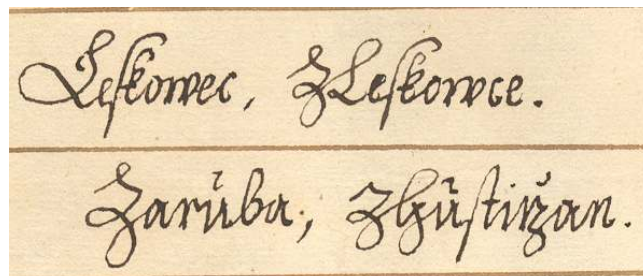 Leskowec, ZLeskowce.
Zarůba, Zhůstirzan.